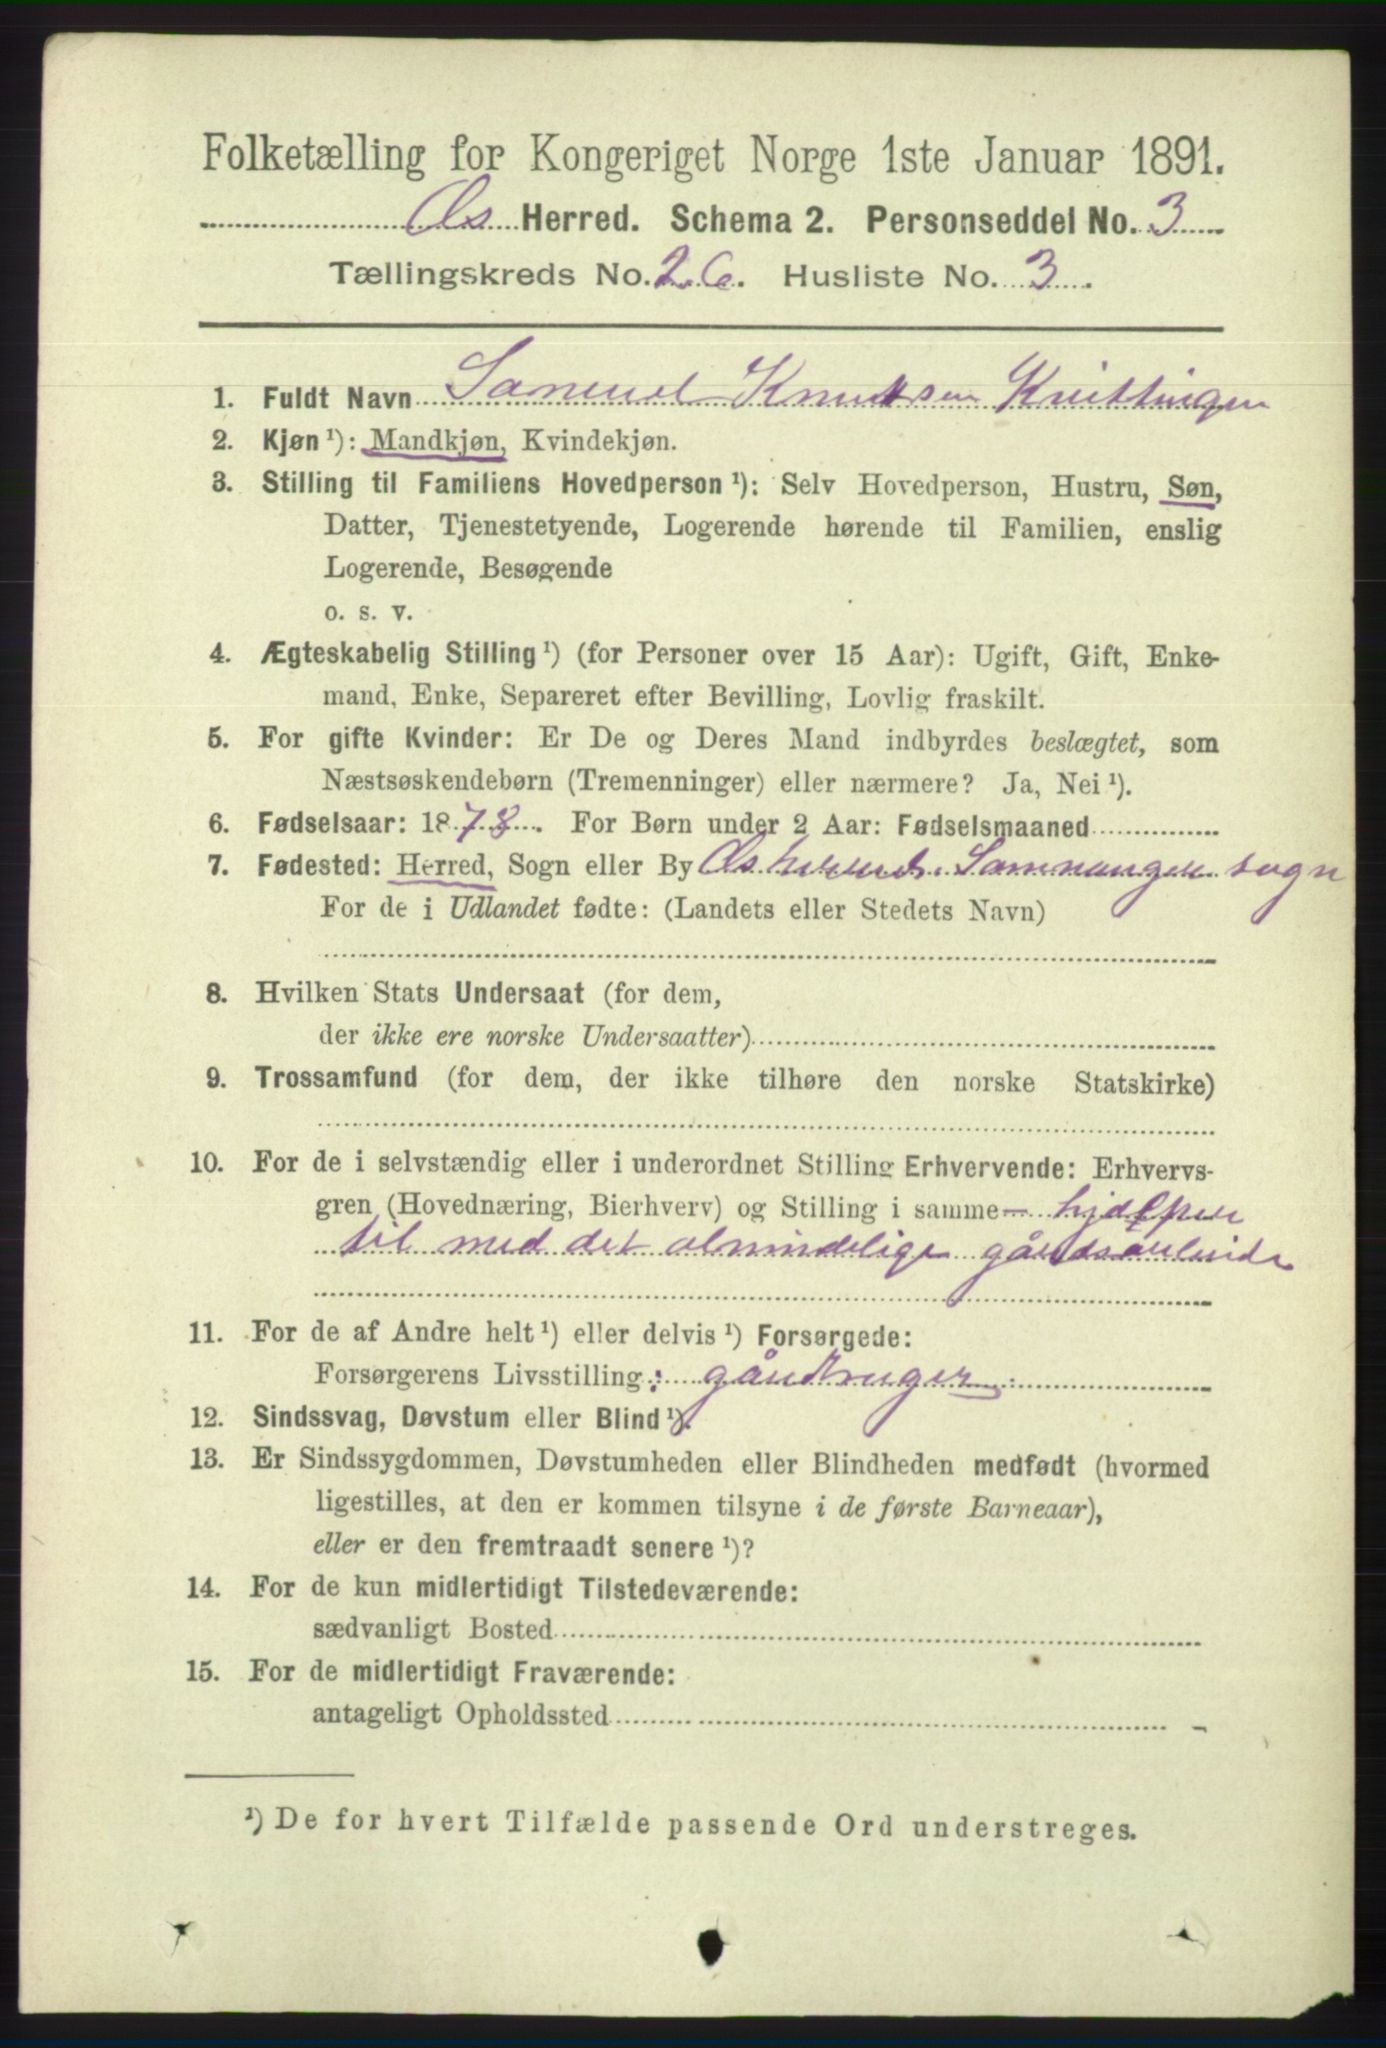 Folketælling for Kongeriget Norge 1ste Januar 1891.
Os Herred. Schema 2. Personseddel No. 3
Tællingskreds No. 26. Husliste No. 3.
1. Fuldt Navn Samuel Knutsen
2. Kjøn ¹): Mandkjøn, Kvindekjøn.
3. Stilling til Familiens Hovedperson ¹): Selv Hovedperson, Hustru, Søn,
Datter, Tjenestetyende, Logerende hørende til Familien, enslig
Logerende, Besøgende
o. s. v.
4. Ægteskabelig Stilling ¹) (for Personer over 15 Aar): Ugift, Gift, Enke-
mand, Enke, Separeret efter Bevilling, Lovlig fraskilt.
5. For gifte Kvinder: Er De og Deres Mand indbyrdes beslægtet, som
Næstsøskendebørn (Tremenninger) eller nærmere? Ja, Nei ¹).
6. Fødselsaar: 1878. For Børn under 2 Aar: Fødselsmaaned
7. Fødested: Herred, Sogn eller By Os herred. Samnanger sogn
For de i Udlandet fødte: (Landets eller Stedets Navn)
8. Hvilken Stats Undersaat (for dem,
der ikke ere norske Undersaatter)
9. Trossamfund (for dem, der ikke tilhøre den norske Statskirke)
10. For de i selvstændig eller i underordnet Stilling Erhvervende: Erhvervs-
gren (Hovednæring, Bierhverv) og Stilling i samme — hjælper
til med det almindelige gårdsarbeide
11. For de af Andre helt ¹) eller delvis ¹) Forsørgede:
Forsørgerens Livsstilling: gårdbruger
12. Sindssvag, Døvstum eller Blind ¹).
13. Er Sindssygdommen, Døvstumheden eller Blindheden medfødt (hvormed
ligestilles, at den er kommen tilsyne i de første Barneaar),
eller er den fremtraadt senere ¹)?
14. For de kun midlertidigt Tilstedeværende:
sædvanligt Bosted
15. For de midlertidigt Fraværende:
antageligt Opholdssted
¹) De for hvert Tilfælde passende Ord understreges.